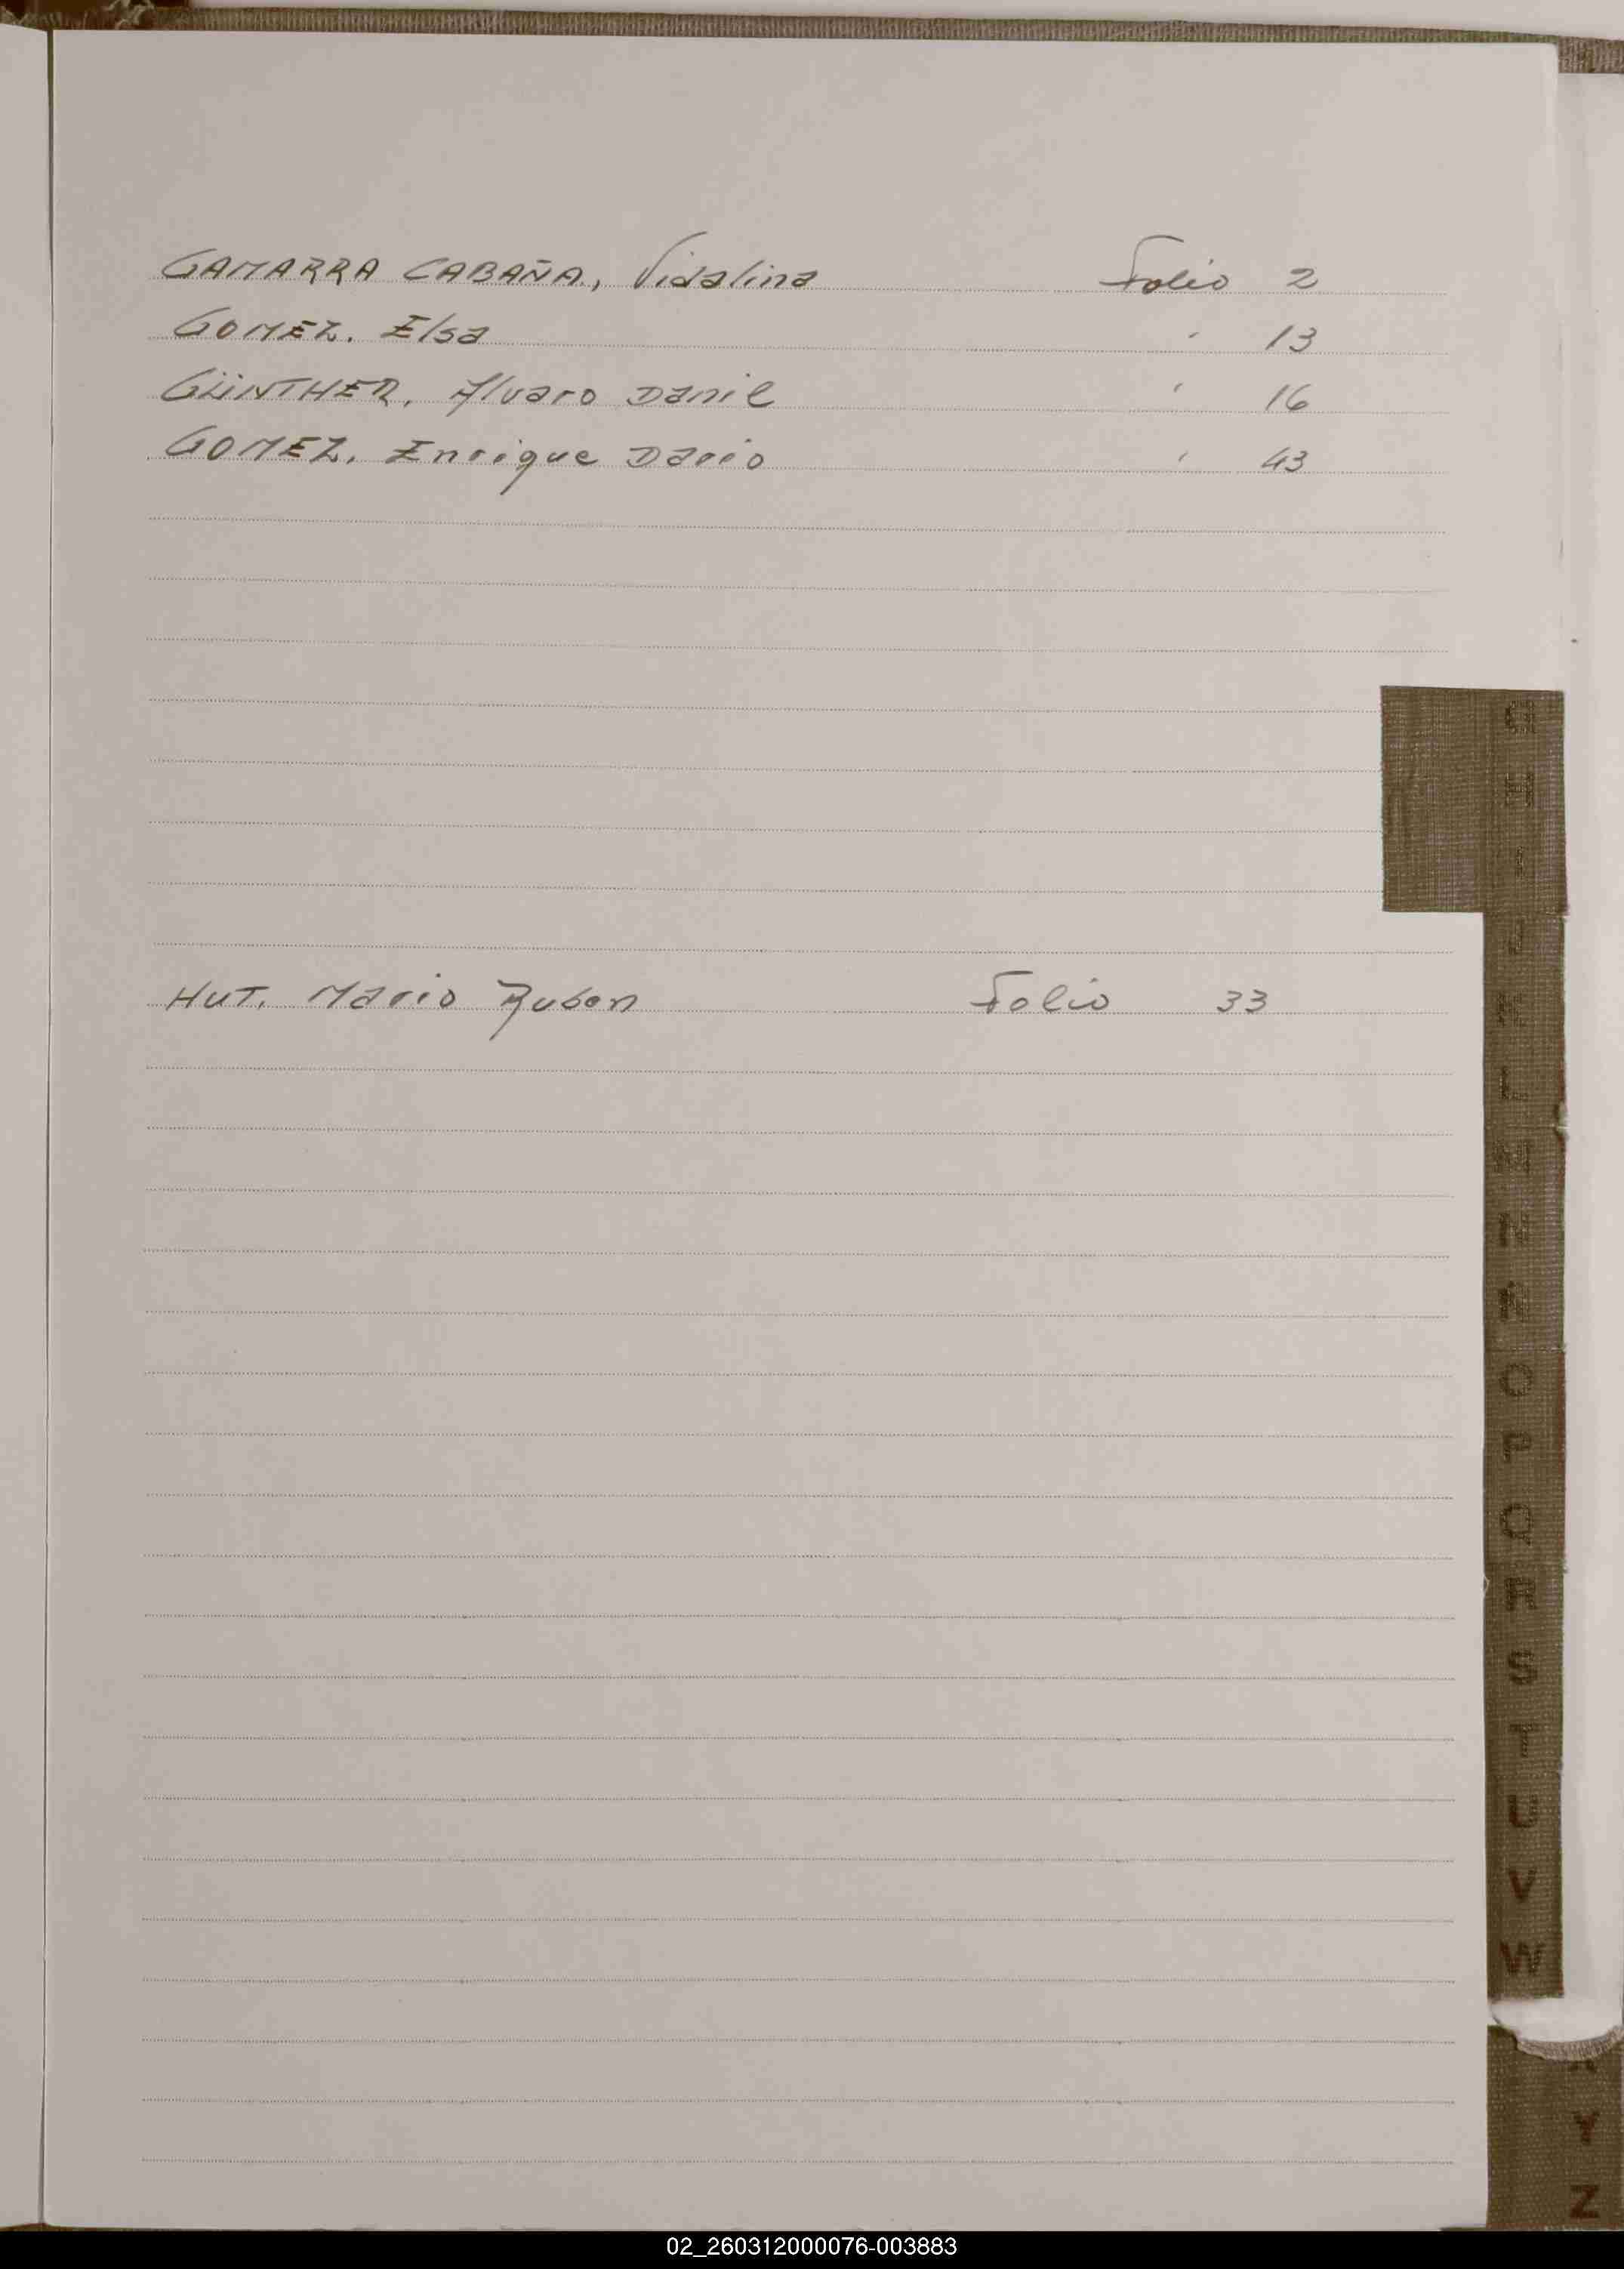 GAMARRA CABAÑA, Vidalina Folio 2
GOMEZ. Elsa " 13
GÜNTHER, Alvaro Danil " 16
GOMEZ, Enrique Dario " 43
HUT, Mario Ruben Folio 33
G
H
I
J
K
L
M
N
Ñ
O
P
Q
R
S
T
U
V
W
X
Y
Z
02_260312000076-003883